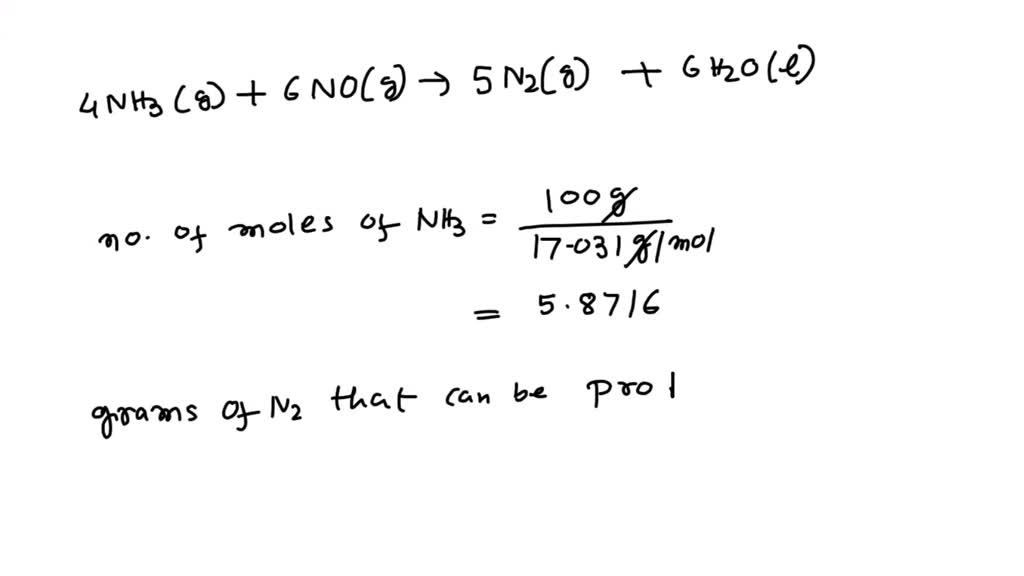 4NH3(g) + 6NO(g) → 5N2(g) + 6H2O(l)
no. of moles of NH3 = 100g / 17.031g/mol
= 5.8716
grams of N2 that can be pro